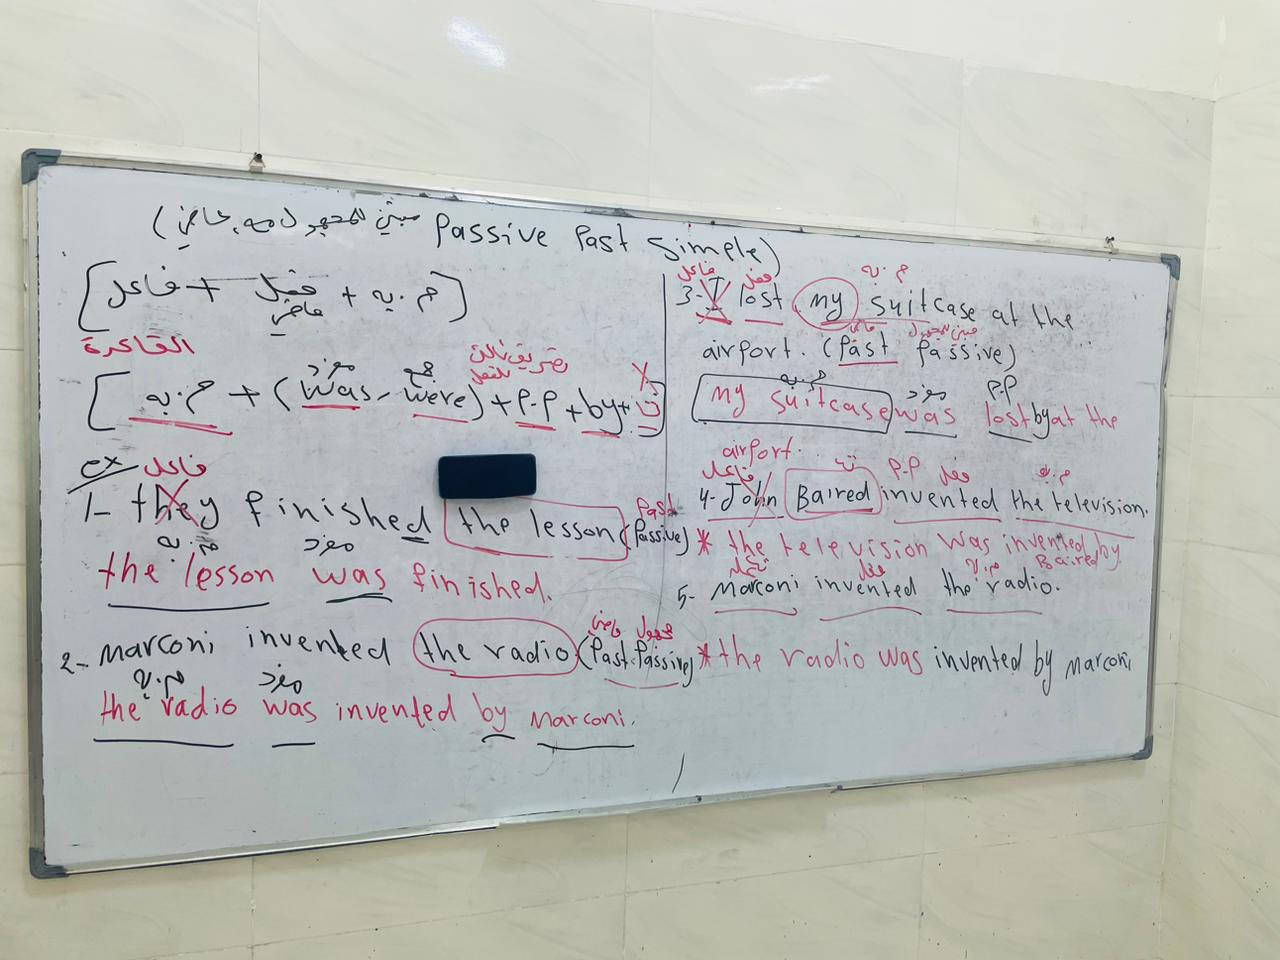 (مبني للمجهول Passive Past Simple)
[فاعل + فعل + م.به]
ماضي
القاعدة
مفرد جمع تصريف ثالث للفعل X
[م.به + (was, were) + P.P + by + ت]
ex فاعل
1- they finished the lesson (Past Passive)
م.به مفرد
the lesson was finished.
مجهول ماضي
2- Marconi invented the radio (Past Passive)
م.به مفرد
the radio was invented by Marconi.
فاعل فعل م.به
3- I lost my suitcase at the
ماضي مبني للمجهول
airport. (Past Passive)
م.به مفرد P.P
my suitcase was lost by at the
airport.
فاعل P.P فعل م.به
4- John Baired invented the television.
* the television was invented by
Baired
فعل م.به
5- Marconi invented the radio.
* the radio was invented by Marconi